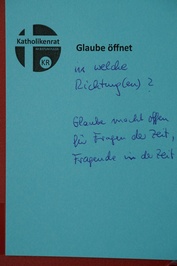 Katholikenrat
KR
Glaube öffnet
in welche
Richtung(en)?
Glaube macht offen
für Fragen der Zeit,
Fragende in der Zeit